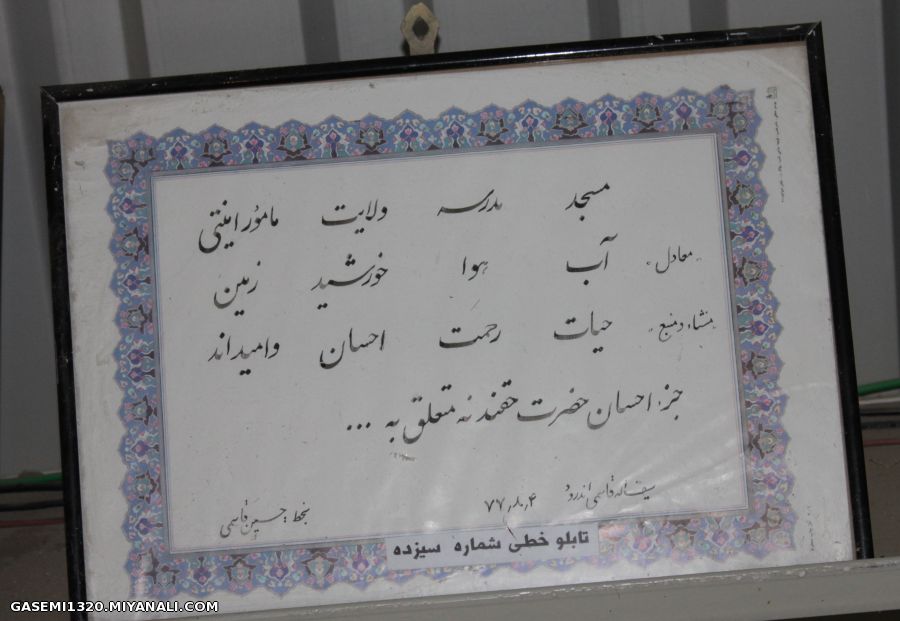 مسجد مدرسه ولایت مامور امنیتی
معادل آب هوا خورشید زمین
منشاء و منبع حیات رحمت احسان و امیداند
جزء احسان حضرت حقند نه متعلق به ...
قاسمی ۷۷٫۸٫۴
بخط حسین قاسمی
تابلو خطی شماره سیزده
GASEMI1320.MIYANALI.COM